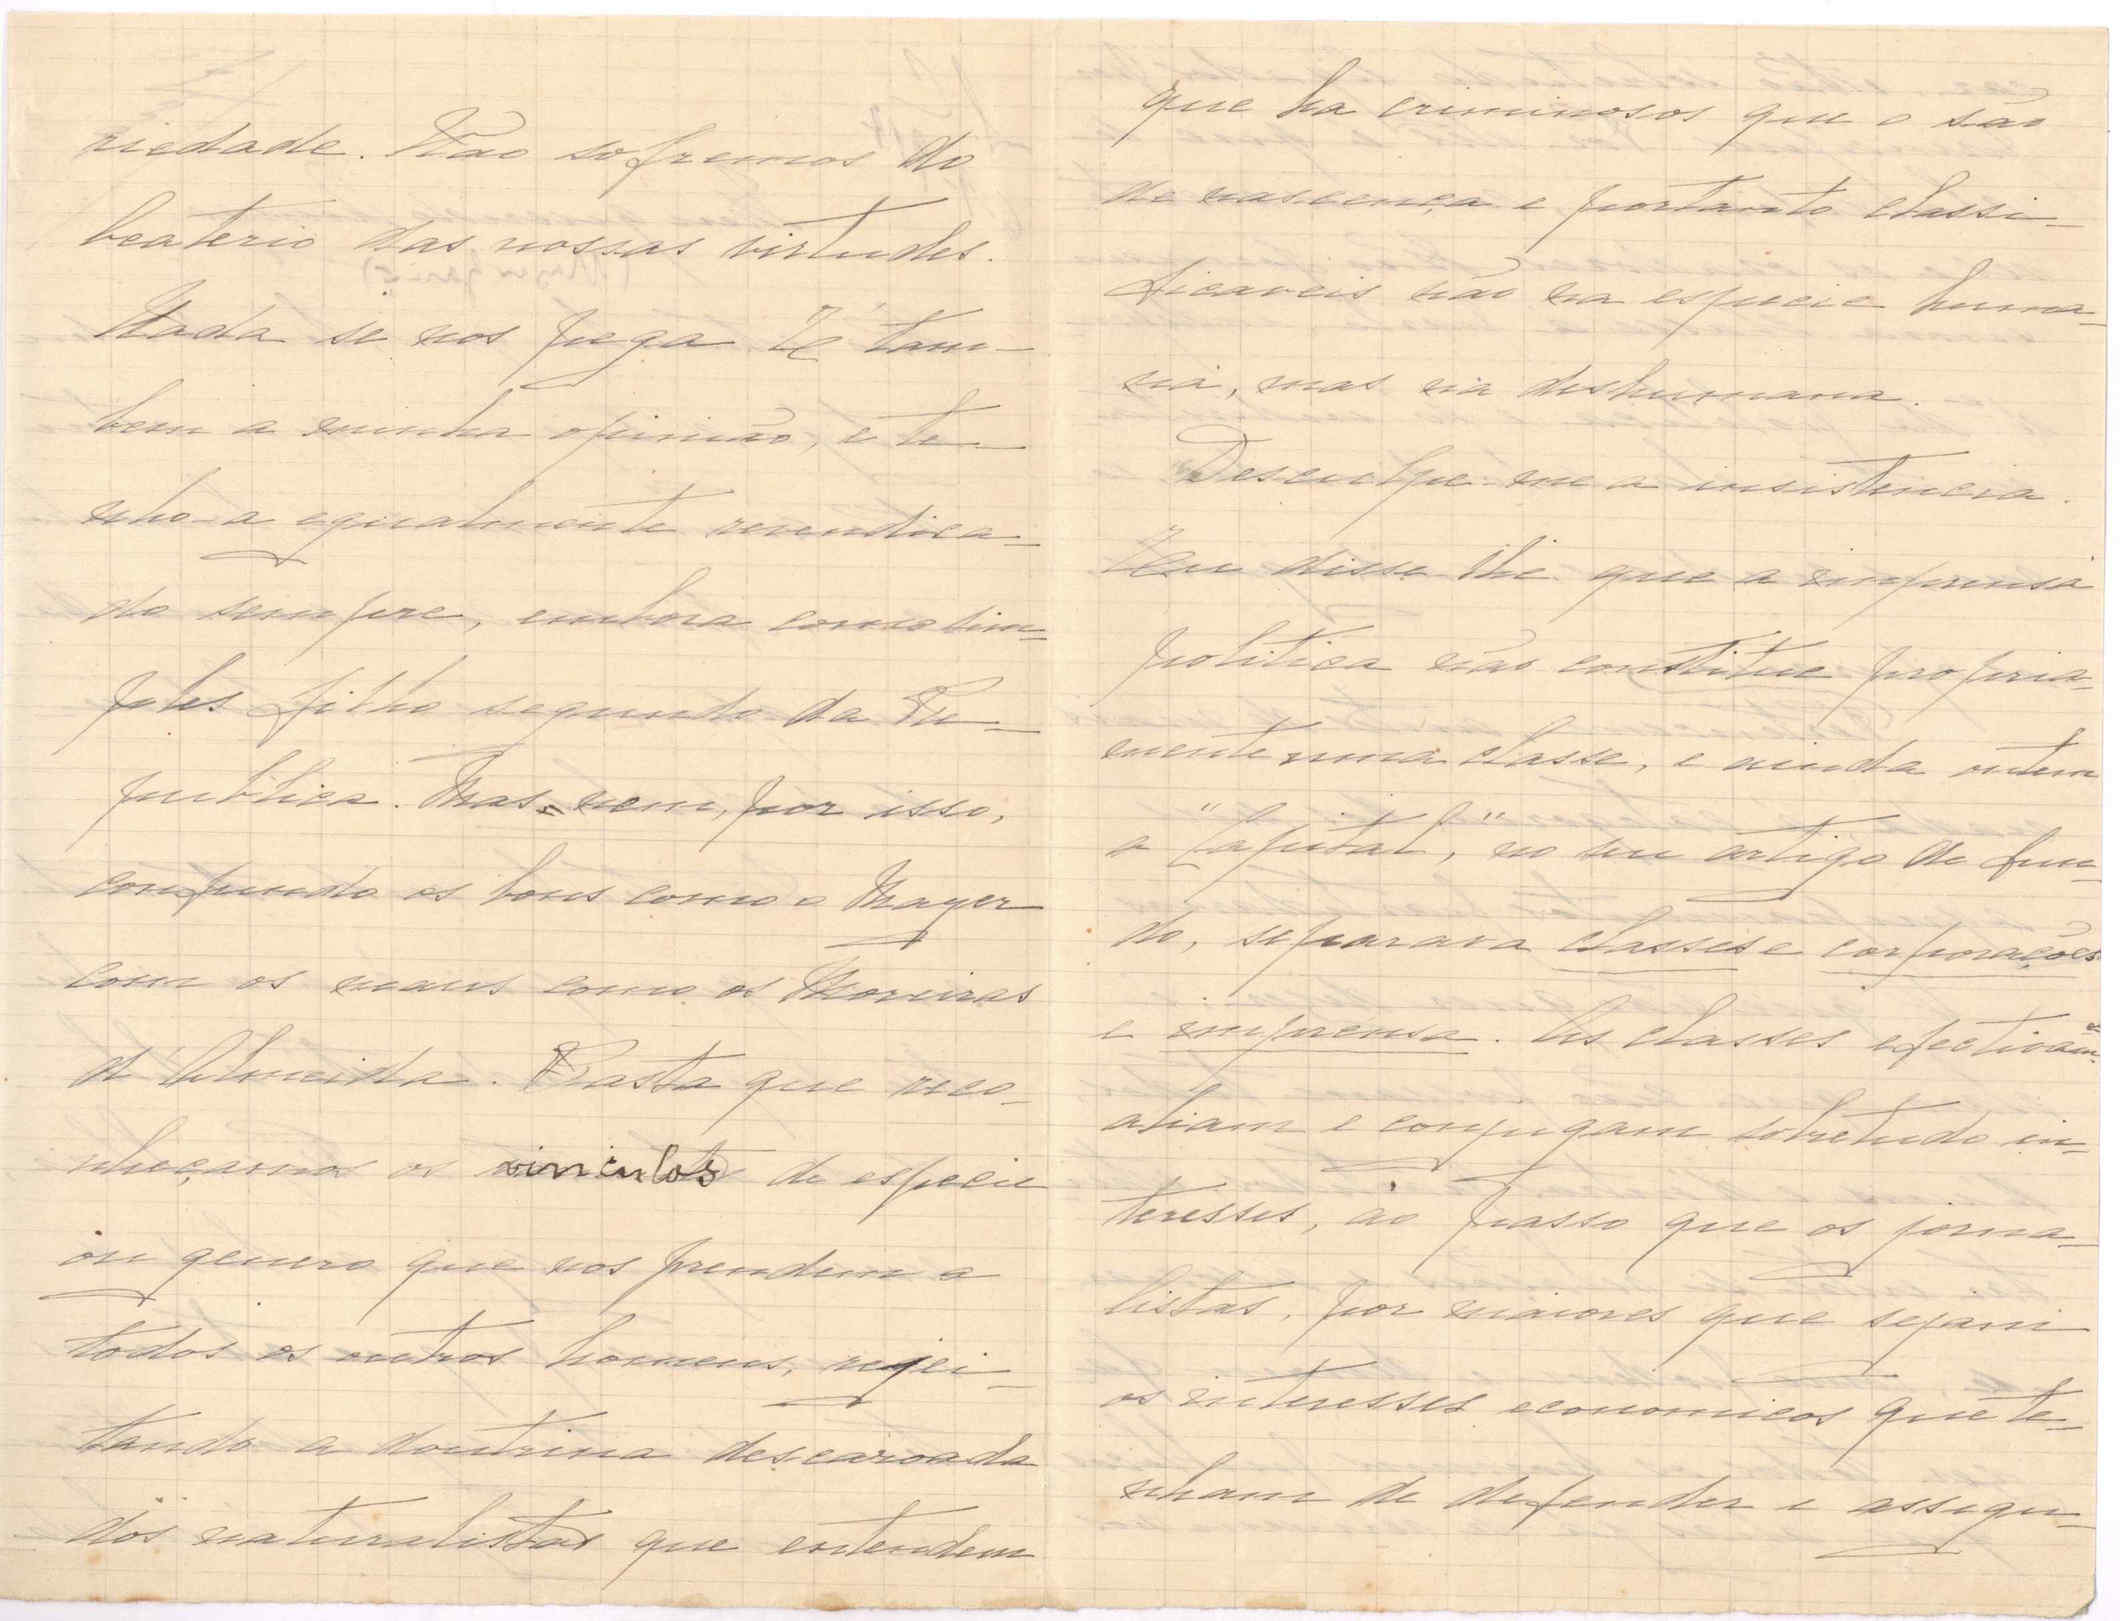 riedade. Não sofremos do
beaterio das nossas virtudes.
Nada se nos pega. É tam-
bem a minha opinião, e te-
nho-a egualmente revendica-
do sempre, embora como sim-
ples filho segundo da Re-
publica. Mas nem, por isso,
confundo os bons como o Mayer
com os maus como os Moreiras
d'Almeida. Basta que reco-
nheçamos os vinculos de especie
ou genero que nos prendem a
todos os outros homens, rejei-
tando a doutrina descaroada
dos naturalistas que entendem
que ha criminosos que o são
de nascença e portanto classi-
ficaveis não na especie huma-
na, mas na deshumana.
Desculpe-me a insistencia.
Eu disse-lhe que a imprensa
politica não constitue propria-
mente uma classe, e ainda ontem
a "Capital," no seu artigo de fun-
do, separava classes e corporações
e imprensa. As classes efectivam.e
aliam e conjugam sobretudo in-
teresses, ao passo que os jorna-
listas, por maiores que sejam
os interesses economicos que te-
nham de defender e assegu-